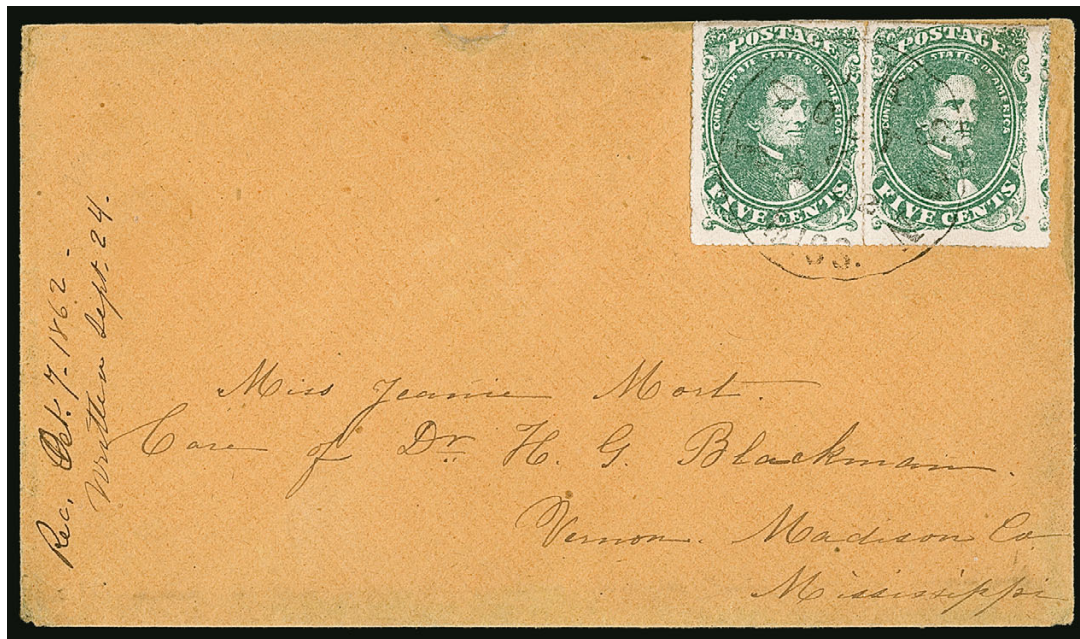 POSTAGE
CONFEDERATE STATES OF AMERICA
FIVE CENTS
POSTAGE
CONFEDERATE STATES OF AMERICA
FIVE CENTS
MISS.
Rec. Oct. 7 - 1862 -
Written Sept. 24.
Miss Jeanie Mort.
Care of Dr. H. G. Blackman.
Vernon. Madison Co
Mississippi